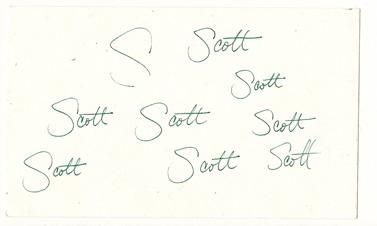 S Scott
Scott
Scott Scott Scott
Scott Scott Scott